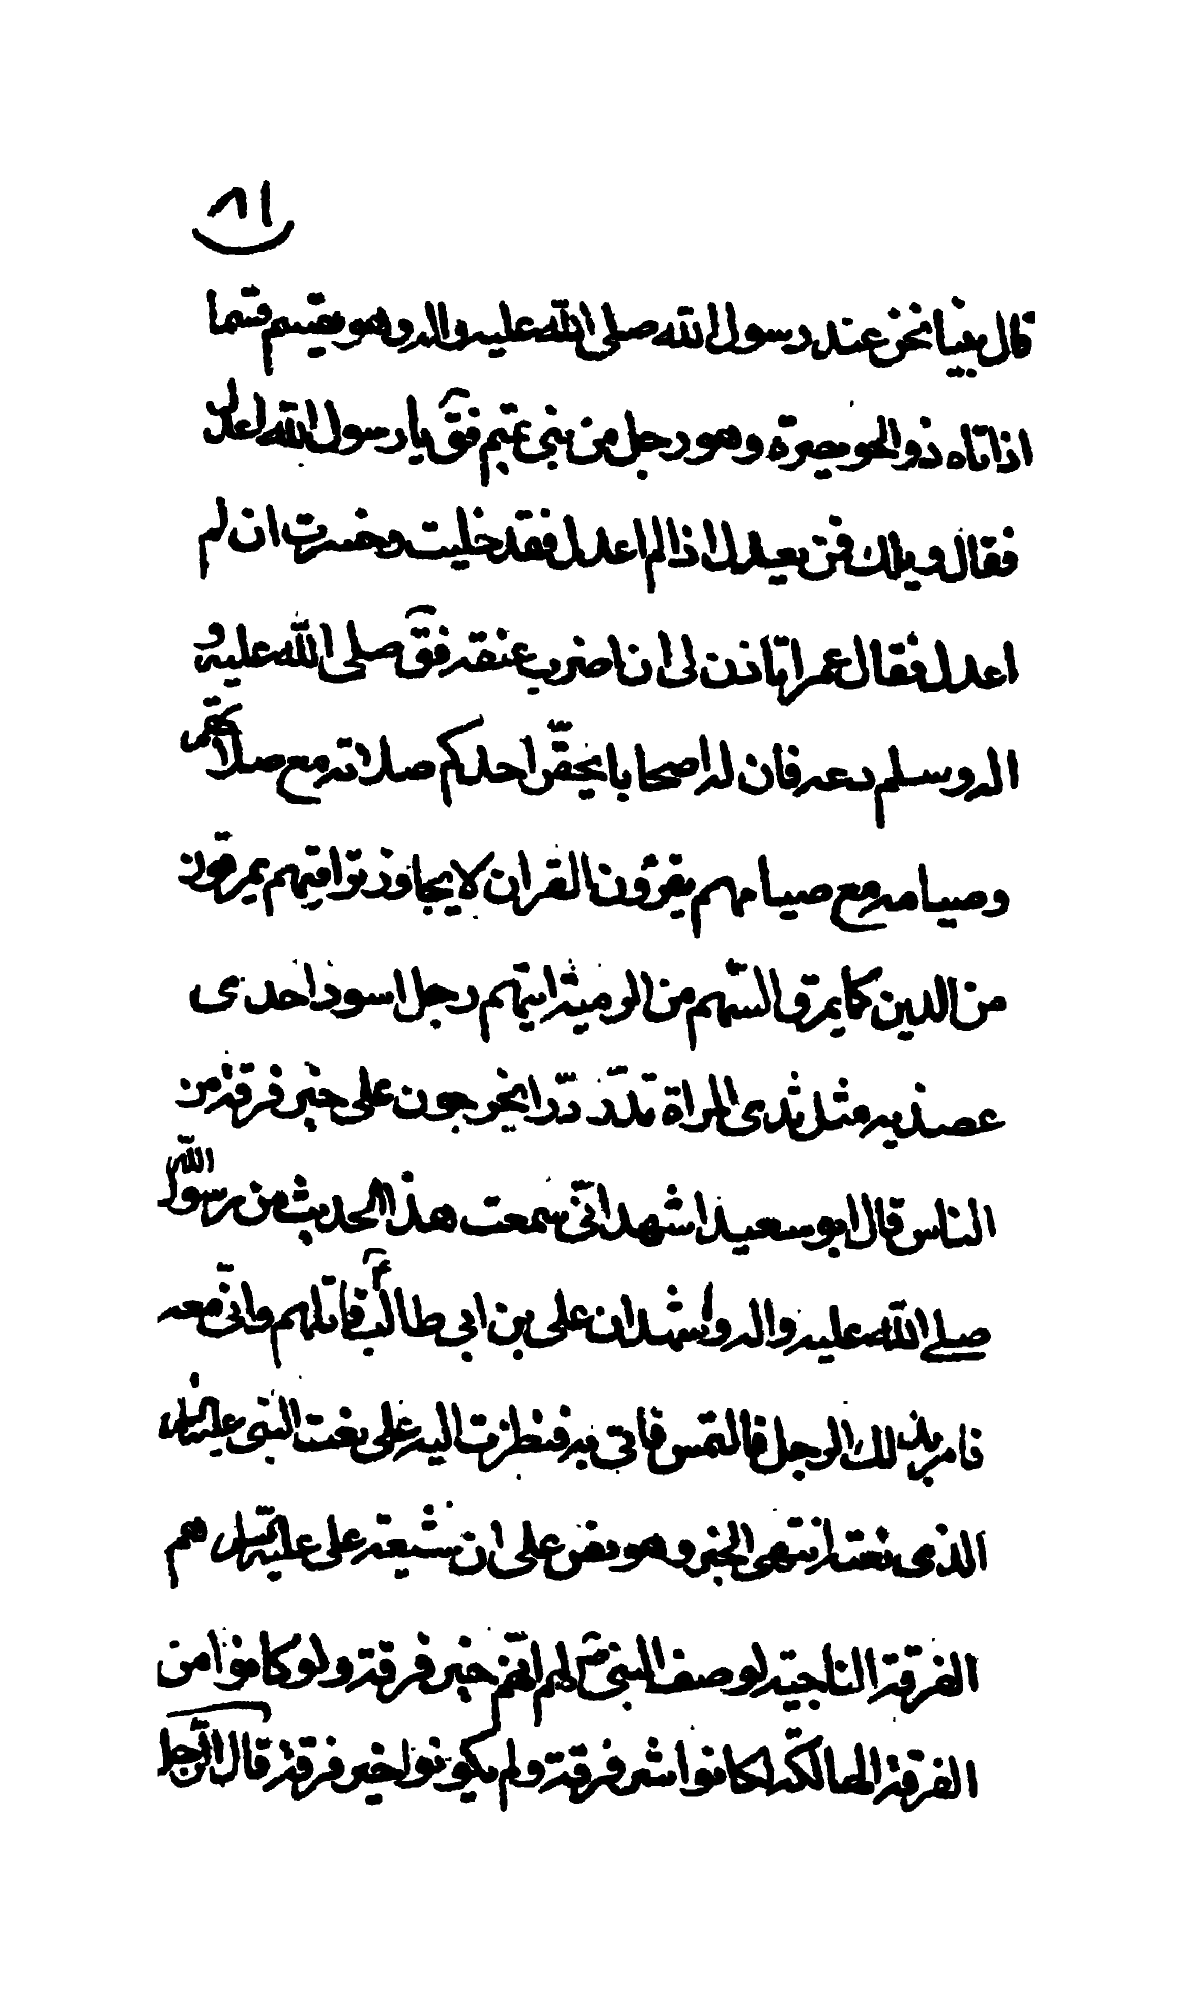 ٨١
قال بينا نحن عند رسول الله صلى الله عليه واله وهو يقسم قسما
اذ اتاه ذو الخويصرة وهو رجل من بنى تميم فق يا رسول الله اعدل
فقال ويلك فمن يعدل اذا لم اعدل فقد خليت وخسرت ان لم
اعدل فقال عمر اتاذن لى ان اضرب عنقه فق صلى الله عليه و
اله وسلم دعه فان له اصحابا يحقر احدكم صلاته مع صلاتهم
وصيامه مع صيامهم يقرؤن القران لا يجاوز تراقيهم يمرقون
من الدين كما يمرق السهم من الرمية ايتهم رجل اسود احدى
عضديه مثل ثدى المراة تدر در يخرجون على خير فرقة من
الناس قال ابو سعيد اشهد انى سمعت هذا الحديث من رسول الله
صلى الله عليه واله واشهد ان على بن ابى طالب قاتلهم وانى معه
فامر بذلك الرجل فالتمس فاتى به فنظرت اليه على نعت النبى
الذى نعته انتهى الخبر وهو نص على ان شيعة على عليه هم
الفرقة الناجية لوصف النبى ص لهم انهم خير فرقة ولو كانوا من
الفرقة الهالكة لكانوا شر فرقة ولم يكونوا خير فرقة قال